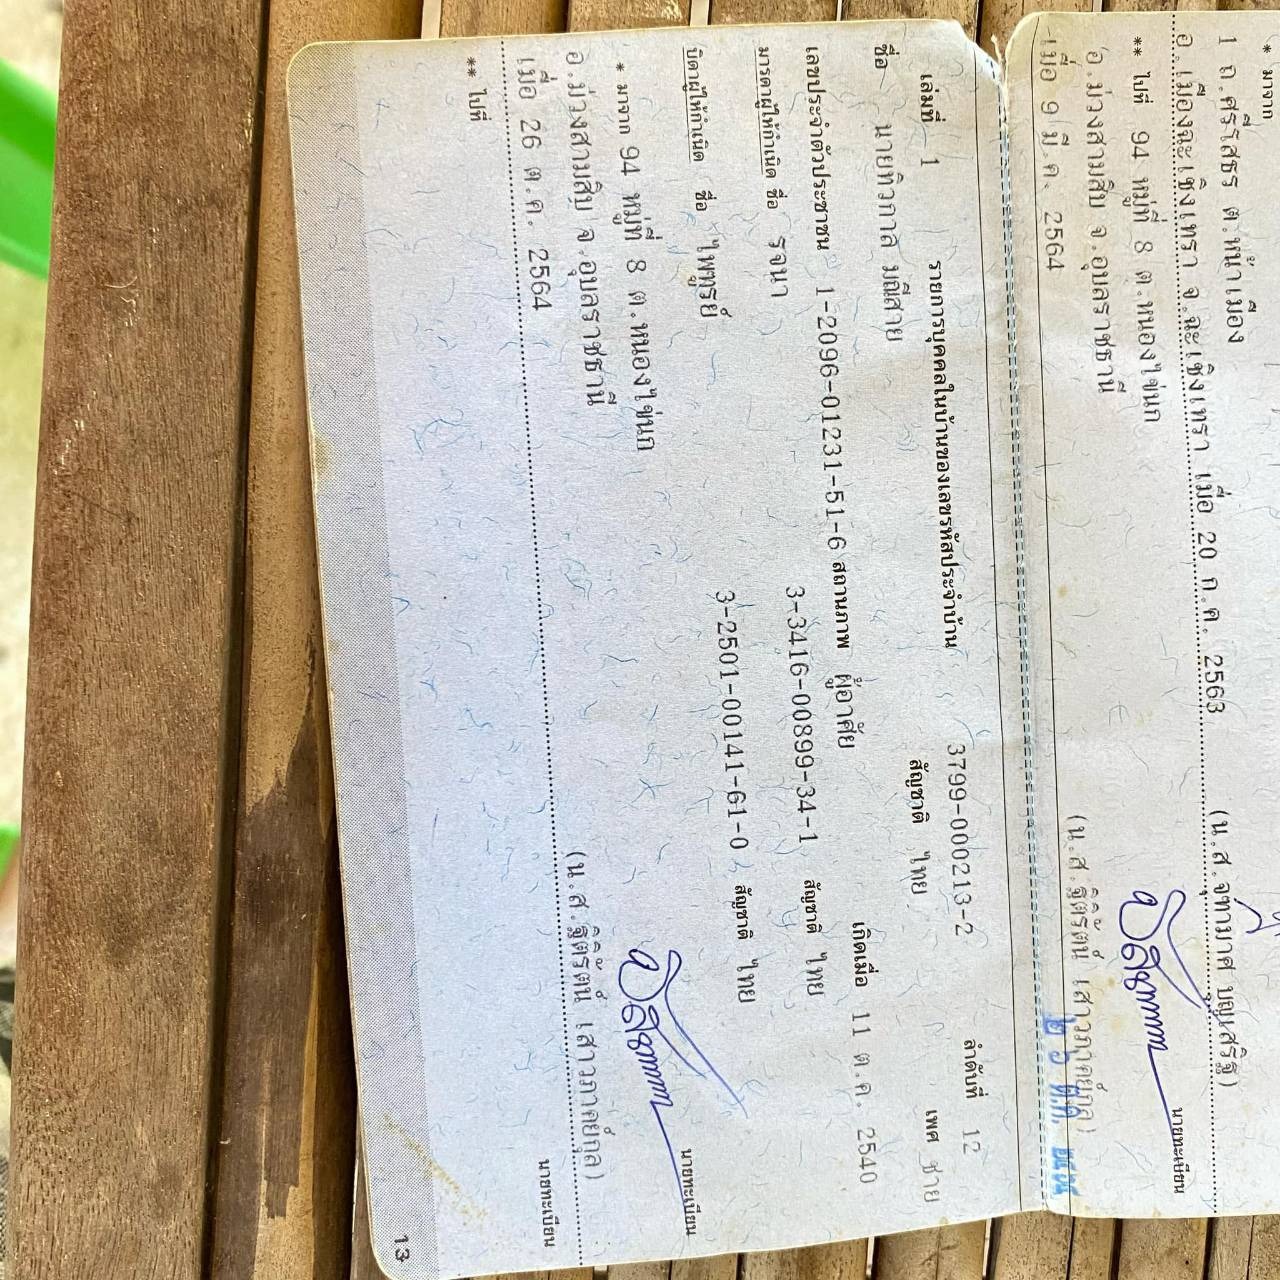 * มาจาก
1 ถ.ศรีโสธร ต.หน้าเมือง
อ.เมืองฉะเชิงเทรา จ.ฉะเชิงเทรา เมื่อ 20 ก.ค. 2563 (น.ส.จุฑามาศ บุญเสริฐ)
** ไปที่ 94 หมู่ที่ 8 ต.หนองไข่นก นายทะเบียน
อ.ม่วงสามสิบ จ.อุบลราชธานี
เมื่อ 9 มี.ค. 2564 (น.ส.ฐิติรัตน์ เสาวภาคย์กุล)
เล่มที่ 1 รายการบุคคลในบ้านของเลขรหัสประจำบ้าน 3799-000213-2 ลำดับที่ 12
ชื่อ นายทิวากาล มณีสาย สัญชาติ ไทย เพศ ชาย
เลขประจำตัวประชาชน 1-2096-01231-51-6 สถานภาพ ผู้อาศัย เกิดเมื่อ 11 ต.ค. 2540
มารดาผู้ให้กำเนิด ชื่อ รจนา 3-3416-00899-34-1 สัญชาติ ไทย
บิดาผู้ให้กำเนิด ชื่อ ไพฑูรย์ 3-2501-00141-61-0 สัญชาติ ไทย
* มาจาก 94 หมู่ที่ 8 ต.หนองไข่นก นายทะเบียน
อ.ม่วงสามสิบ จ.อุบลราชธานี
เมื่อ 26 ต.ค. 2564 (น.ส.ฐิติรัตน์ เสาวภาคย์กุล)
** ไปที่ นายทะเบียน
13